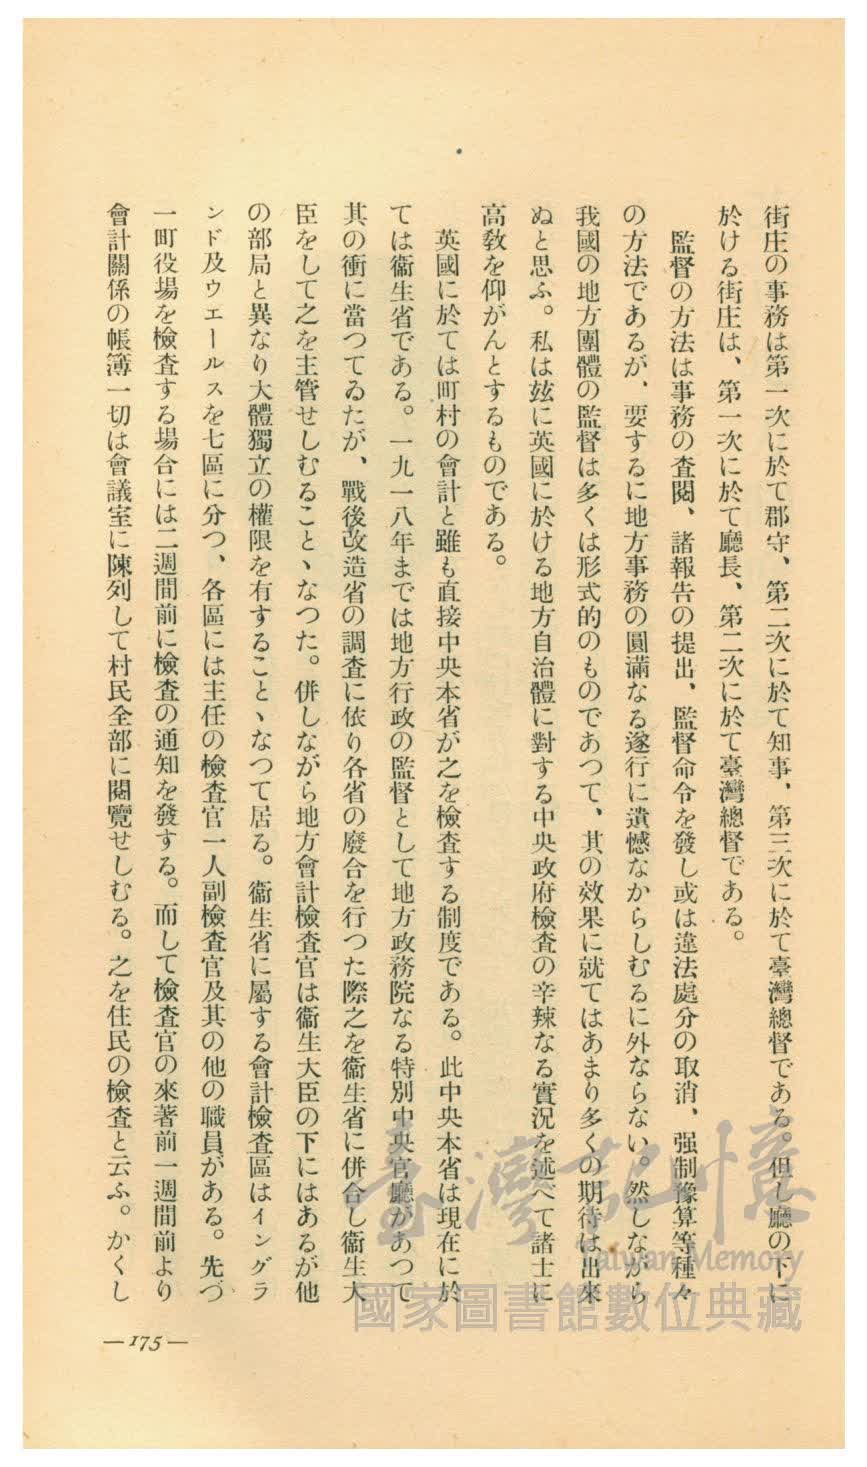 街庄の事務は第一次に於て郡守、第二次に於て知事、第三次に於て臺灣總督である。但し廳の下に
於ける街庄は、第一次に於て廳長、第二次に於て臺灣總督である。
監督の方法は事務の査閱、諸報告の提出、監督命令を發し或は違法處分の取消、强制豫算等種々
の方法であるが、要するに地方事務の圓滿なる遂行に遺憾なからしむるに外ならない。然しながら
我國の地方團體の監督は多くは形式的のものであつて、其の效果に就てはあまり多くの期待は出來
ぬと思ふ。私は玆に英國に於ける地方自治體に對する中央政府檢査の辛辣なる實況を述べて諸士に
高敎を仰がんとするものである。
英國に於ては町村の會計と雖も直接中央本省が之を檢査する制度である。此中央本省は現在に於
ては衞生省である。一九一八年までは地方行政の監督として地方政務院なる特別中央官廳があつて
其の衝に當つてゐたが、戰後改造省の調査に依り各省の廢合を行つた際之を衞生省に併合し衞生大
臣をして之を主管せしむることゝなつた。併しながら地方會計檢査官は衞生大臣の下にはあるが他
の部局と異なり大體獨立の權限を有することゝなつて居る。衞生省に屬する會計檢査區はイングラ
ンド及ウエールスを七區に分つ、各區には主任の檢査官一人副檢査官及其の他の職員がある。先づ
一町役場を檢査する場合には二週間前に檢査の通知を發する。而して檢査官の來著前一週間前より
會計關係の帳簿一切は會議室に陳列して村民全部に閱覽せしむる。之を住民の檢査と云ふ。かくし
—175—
臺灣記憶
Taiwan Memory
國家圖書館數位典藏